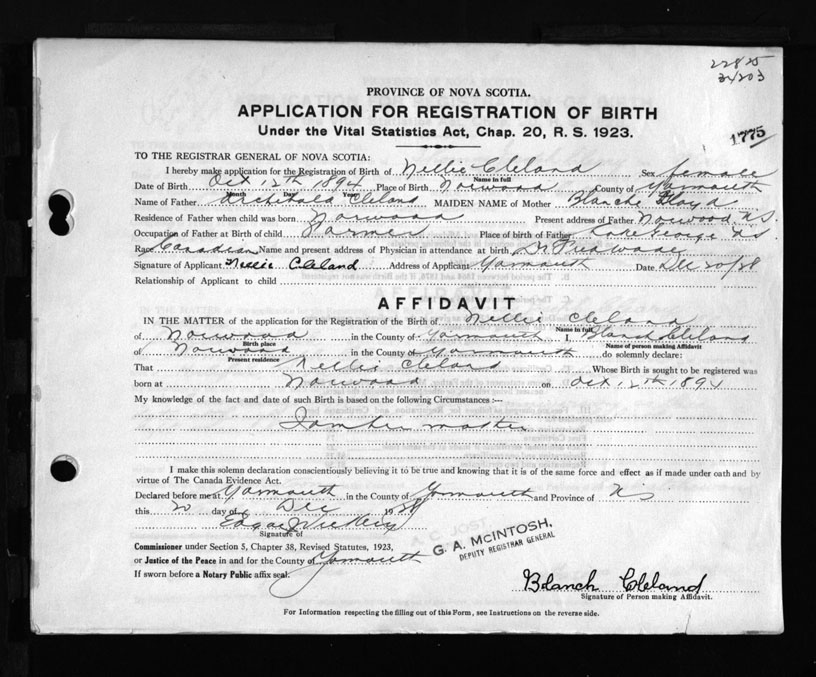 22825
34203
PROVINCE OF NOVA SCOTIA.
APPLICATION FOR REGISTRATION OF BIRTH
Under the Vital Statistics Act, Chap. 20, R. S. 1923.
1775
TO THE REGISTRAR GENERAL OF NOVA SCOTIA:
I hereby make application for the Registration of Birth of Nellie Cleland Sex female
Name in full
Date of Birth Oct 12th 1894 Place of Birth Norwood County of Yarmouth
Month Day Year
Name of Father Archibald Cleland MAIDEN NAME of Mother Blanche Floyd
Residence of Father when child was born Norwood Present address of Father Norwood N.S.
Occupation of Father at Birth of child Farmer Place of birth of Father Lake George N S
Race Canadian Name and present address of Physician in attendance at birth Dr Fred Wade
Signature of Applicant Nellie Cleland Address of Applicant Yarmouth Date Dec 20/28
Relationship of Applicant to child
AFFIDAVIT
IN THE MATTER of the application for the Registration of the Birth of Nellie Cleland
Name in full
of Norwood in the County of Yarmouth I, Blanch Cleland
Birth place Name of person making Affidavit
of Norwood in the County of Yarmouth do solemnly declare:
Present residence
That Nellie Cleland Whose Birth is sought to be registered was
born at Norwood on Oct 12th 1894
My knowledge of the fact and date of such Birth is based on the following Circumstances :—
I am her mother
I make this solemn declaration conscientiously believing it to be true and knowing that it is of the same force and effect as if made under oath and by
virtue of The Canada Evidence Act.
Declared before me at Yarmouth in the County of Yarmouth and Province of N S
this 20 day of Dec 1928
Edgar
Signature of
A. C. JOST
G. A. McINTOSH,
DEPUTY REGISTRAR GENERAL
Commissioner under Section 5, Chapter 38, Revised Statutes, 1923,
or Justice of the Peace in and for the County of Yarmouth
If sworn before a Notary Public affix seal.
Blanch Cleland
Signature of Person making Affidavit.
For Information respecting the filling out of this Form, see Instructions on the reverse side.